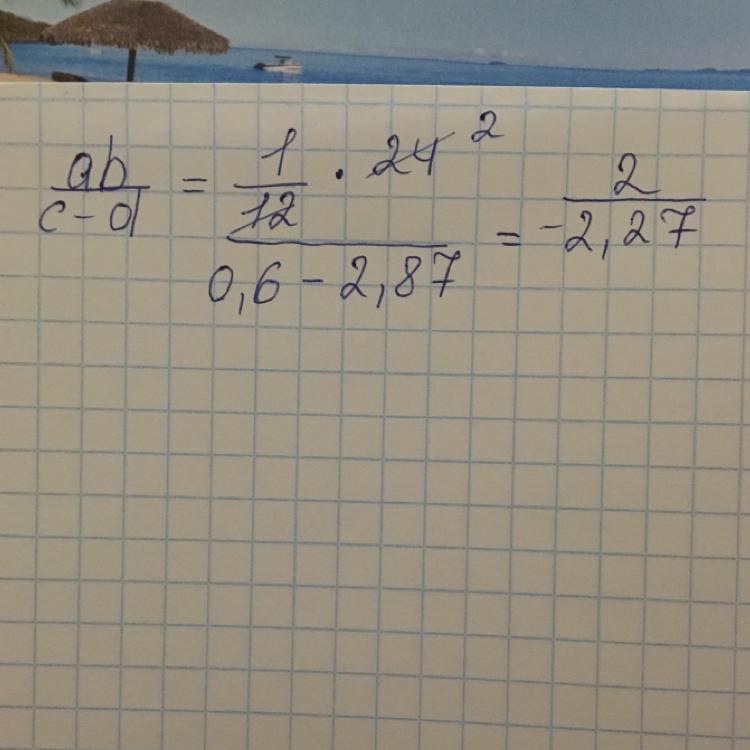 ab/(c-d) = (1/12 · 24 2)/(0,6 - 2,87) = 2/(-2,27)